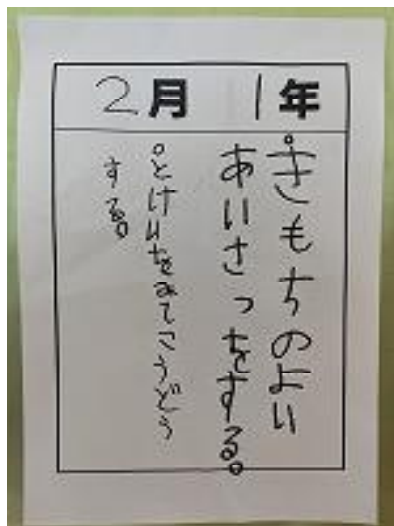 2月 1年
。きもちのよい
あいさつをする。
。とけいをみてこうどう
する。